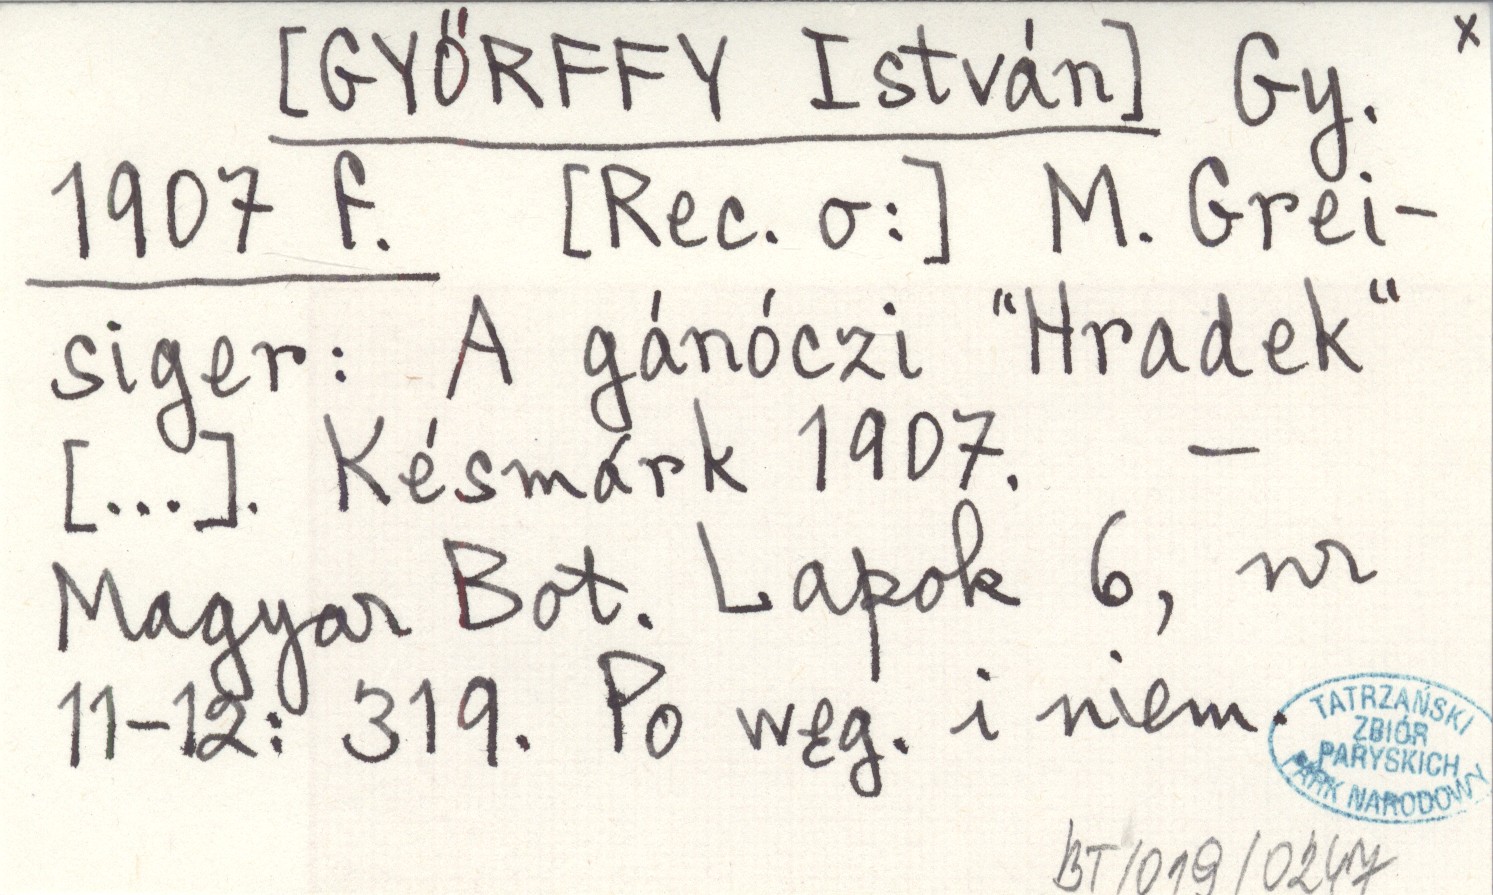 x
[GYŐRFFY István] Gy.
1907 f. [Rec. o:] M. Grei-
siger: A gánóczi "Hradek"
[...]. Késmárk 1907. —
Magyar Bot. Lapok 6, nr
11-12: 319. Po węg. i niem.
TATRZAŃSKI
ZBIÓR
PARYSKICH
PARK NARODOWY
BT/019/0247